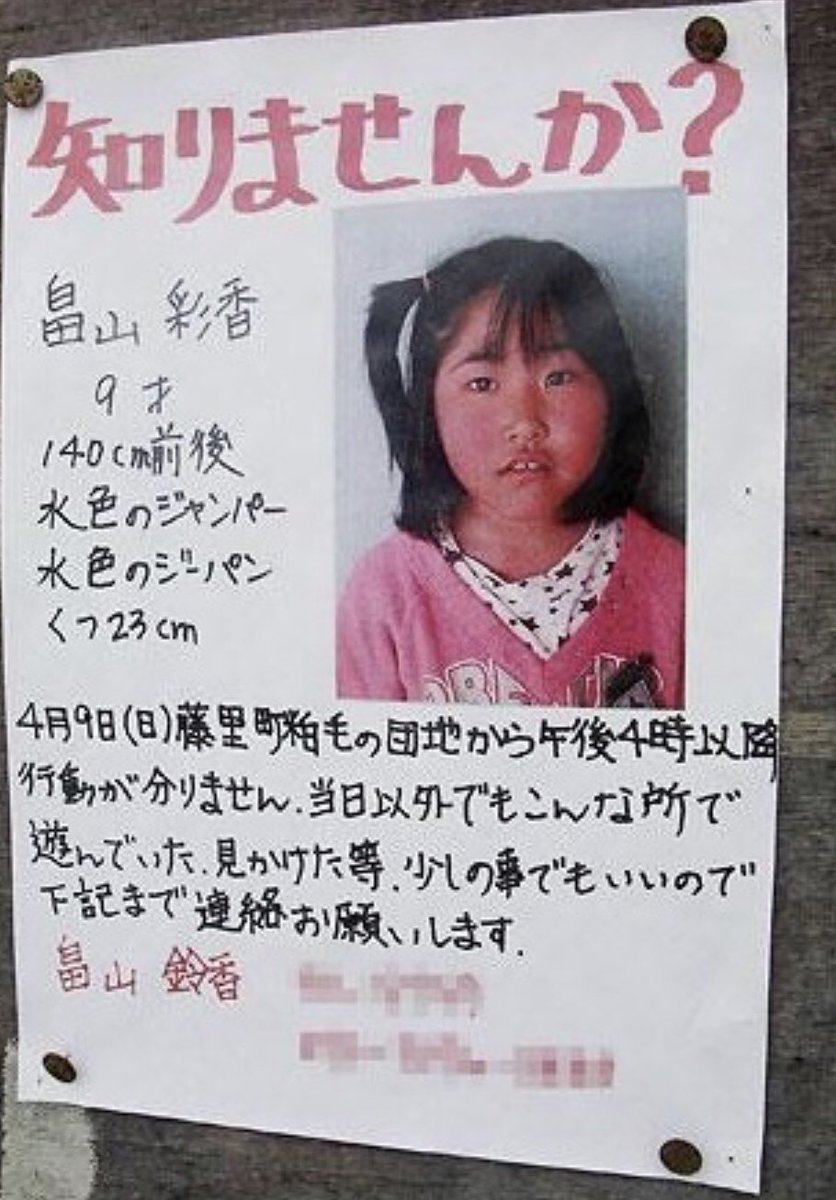 知りませんか?
畠山 彩香
9才
140cm前後
水色のジャンパー
水色のジーパン
くつ23cm
4月9日(日)藤里町粕毛の団地から午後4時以降
行動が分りません.当日以外でもこんな所で
遊んでいた.見かけた等.少しの事でもいいので
下記まで連絡お願いします.
畠山 鈴香